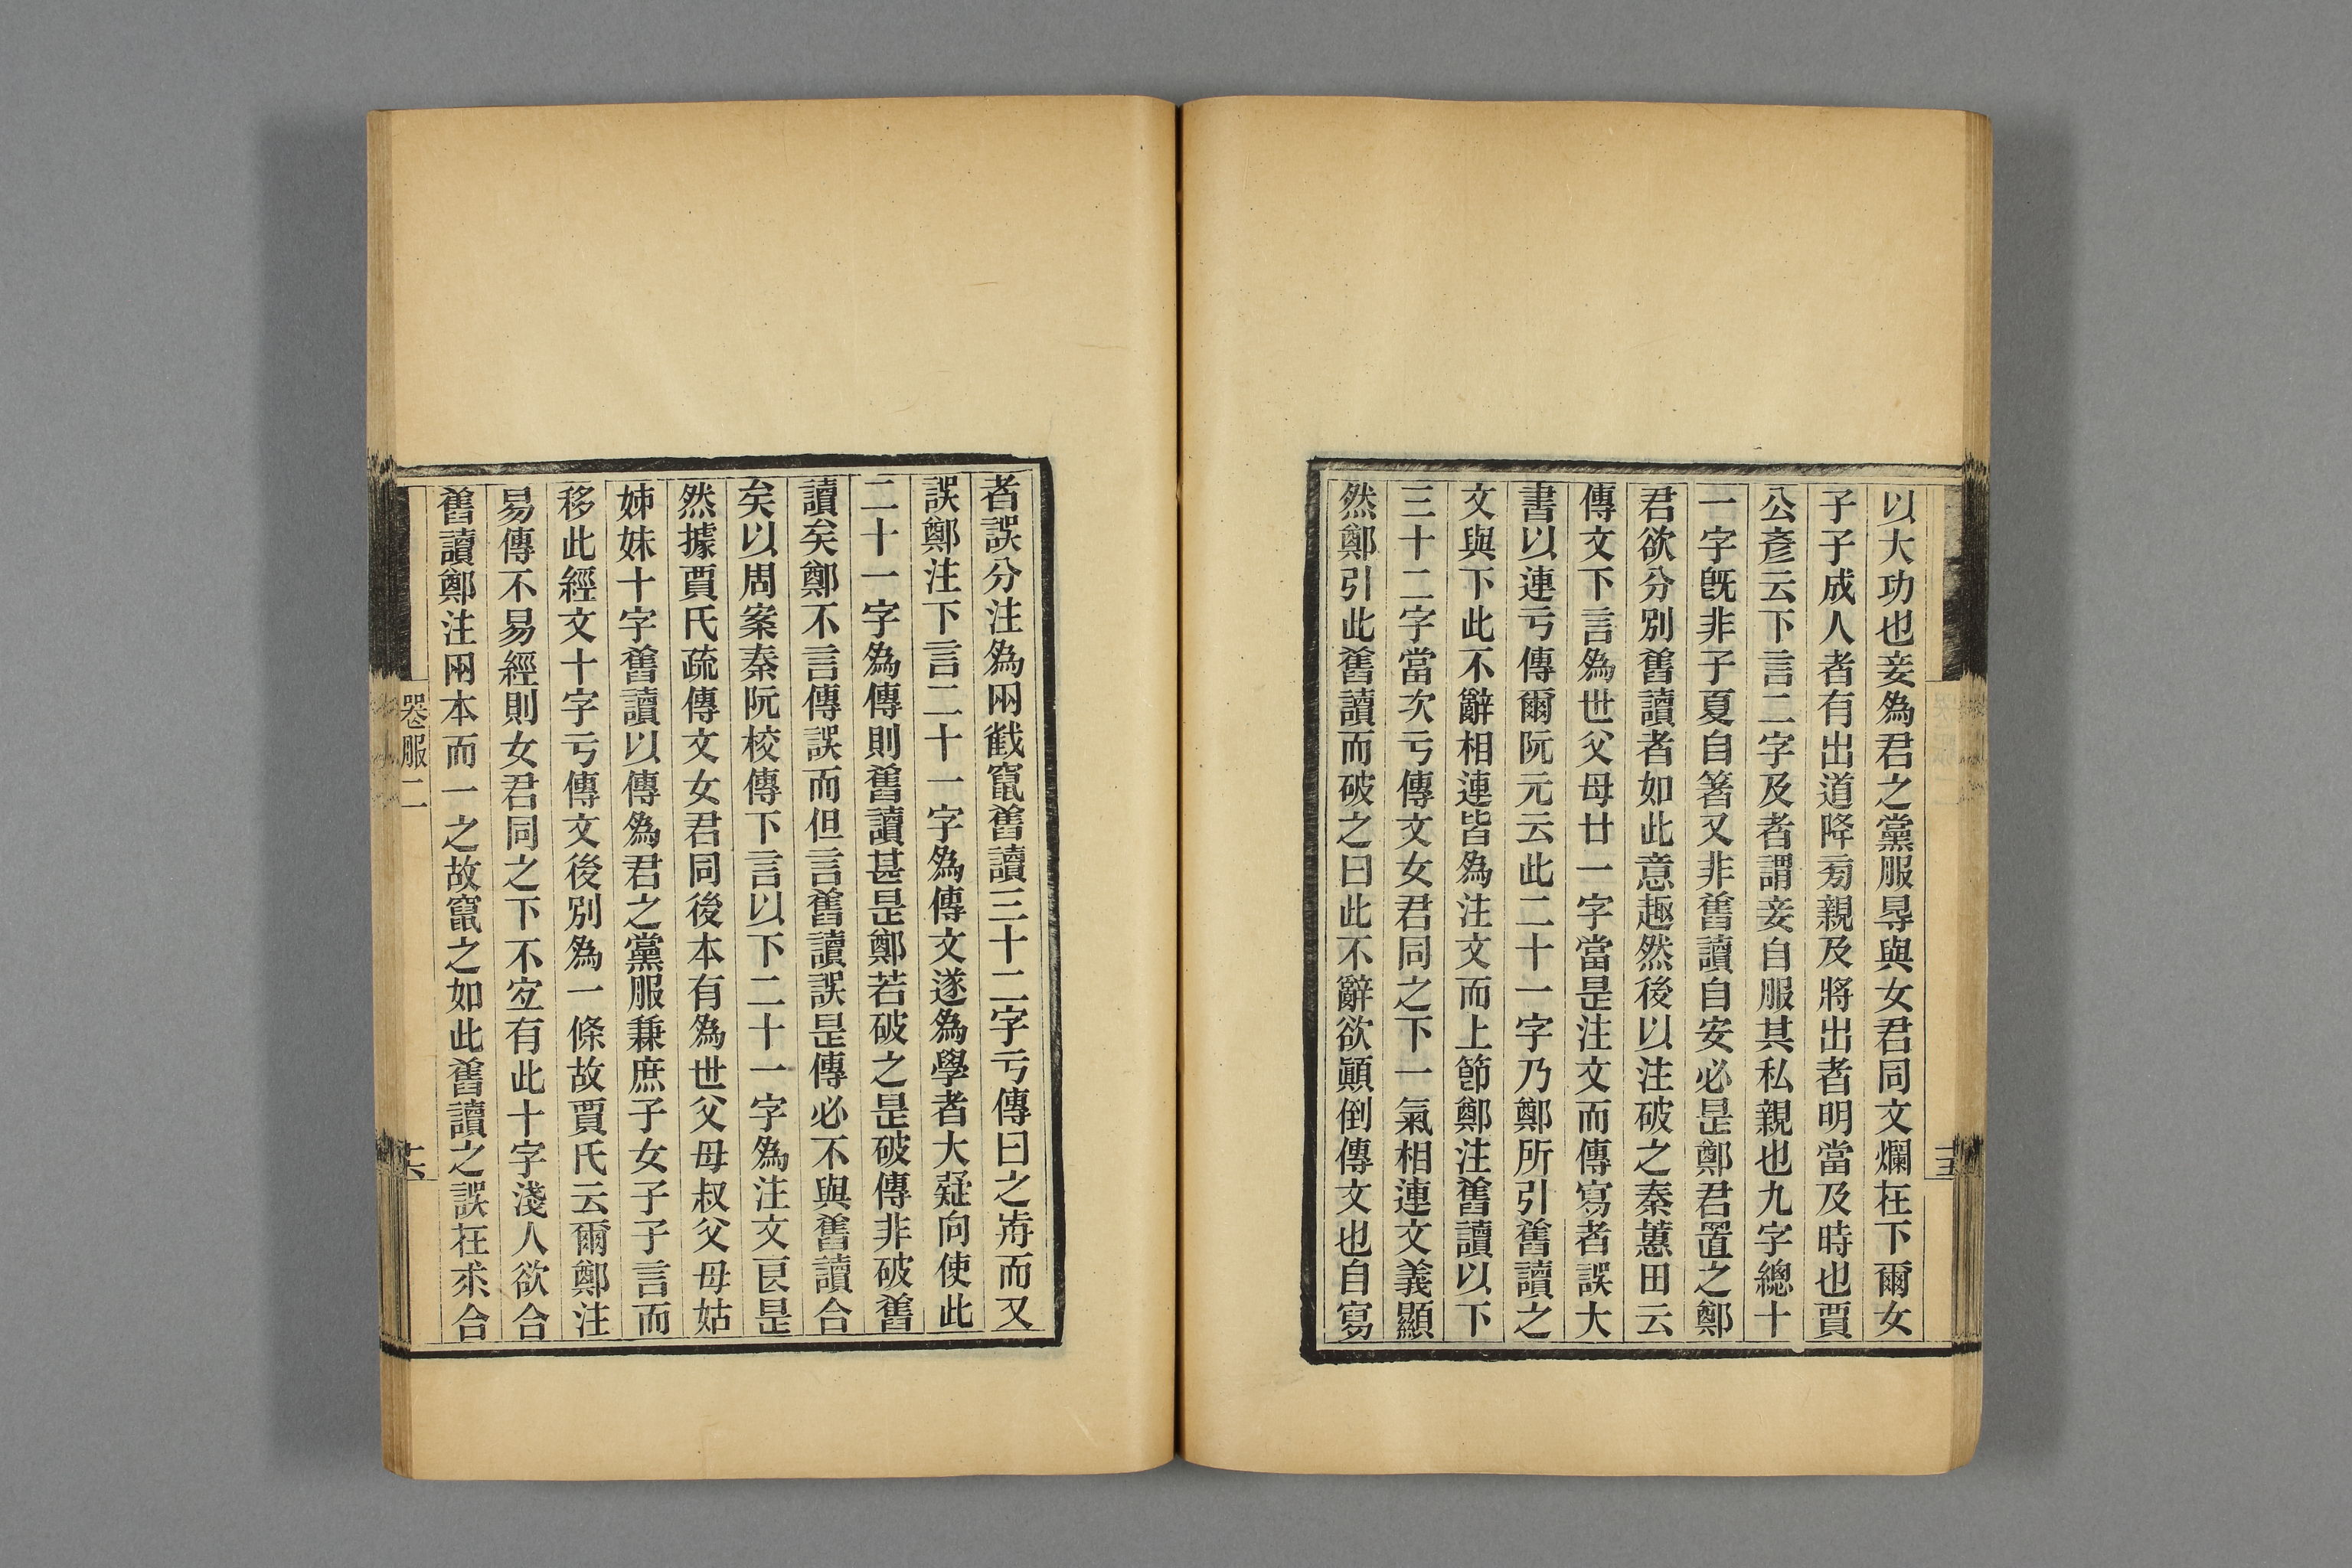 以大功也妾爲君之黨服㝵與女君同文爛在下爾女
子子成人者有出道降旁親及將出者明當及時也賈
公彥云下言二字及者謂妾自服其私親也九字總十
一字旣非子夏自著又非舊讀自安必是鄭君置之鄭
君欲分別舊讀者如此意趣然後以注破之秦蕙田云
傳文下言爲世父母廿一字當是注文而傳寫者誤大
書以連亏傳爾阮元云此二十一字乃鄭所引舊讀之
文與下此不辭相連皆爲注文而上節鄭注舊讀以下
三十二字當次亏傳文女君同之下一氣相連文義顯
然鄭引此舊讀而破之曰此不辭欲顚倒傳文也自寫
者誤分注爲兩截竄舊讀三十二字亏傳曰之歬而又
誤鄭注下言二十一字爲傳文遂爲學者大疑向使此
二十一字爲傳則舊讀甚是鄭若破之是破傳非破舊
讀矣鄭不言傳誤而但言舊讀誤是傳必不與舊讀合
矣以周案秦阮校傳下言以下二十一字爲注文㫐是
然據賈氏疏傳文女君同後本有爲世父母叔父母姑
姊妹十字舊讀以傳爲君之黨服兼庶子女子子言而
移此經文十字亏傳文後別爲一條故賈氏云爾鄭注
易傳不易經則女君同之下不宐有此十字淺人欲合
舊讀鄭注兩本而一之故竄之如此舊讀之誤在求合
喪服二
十六
十五